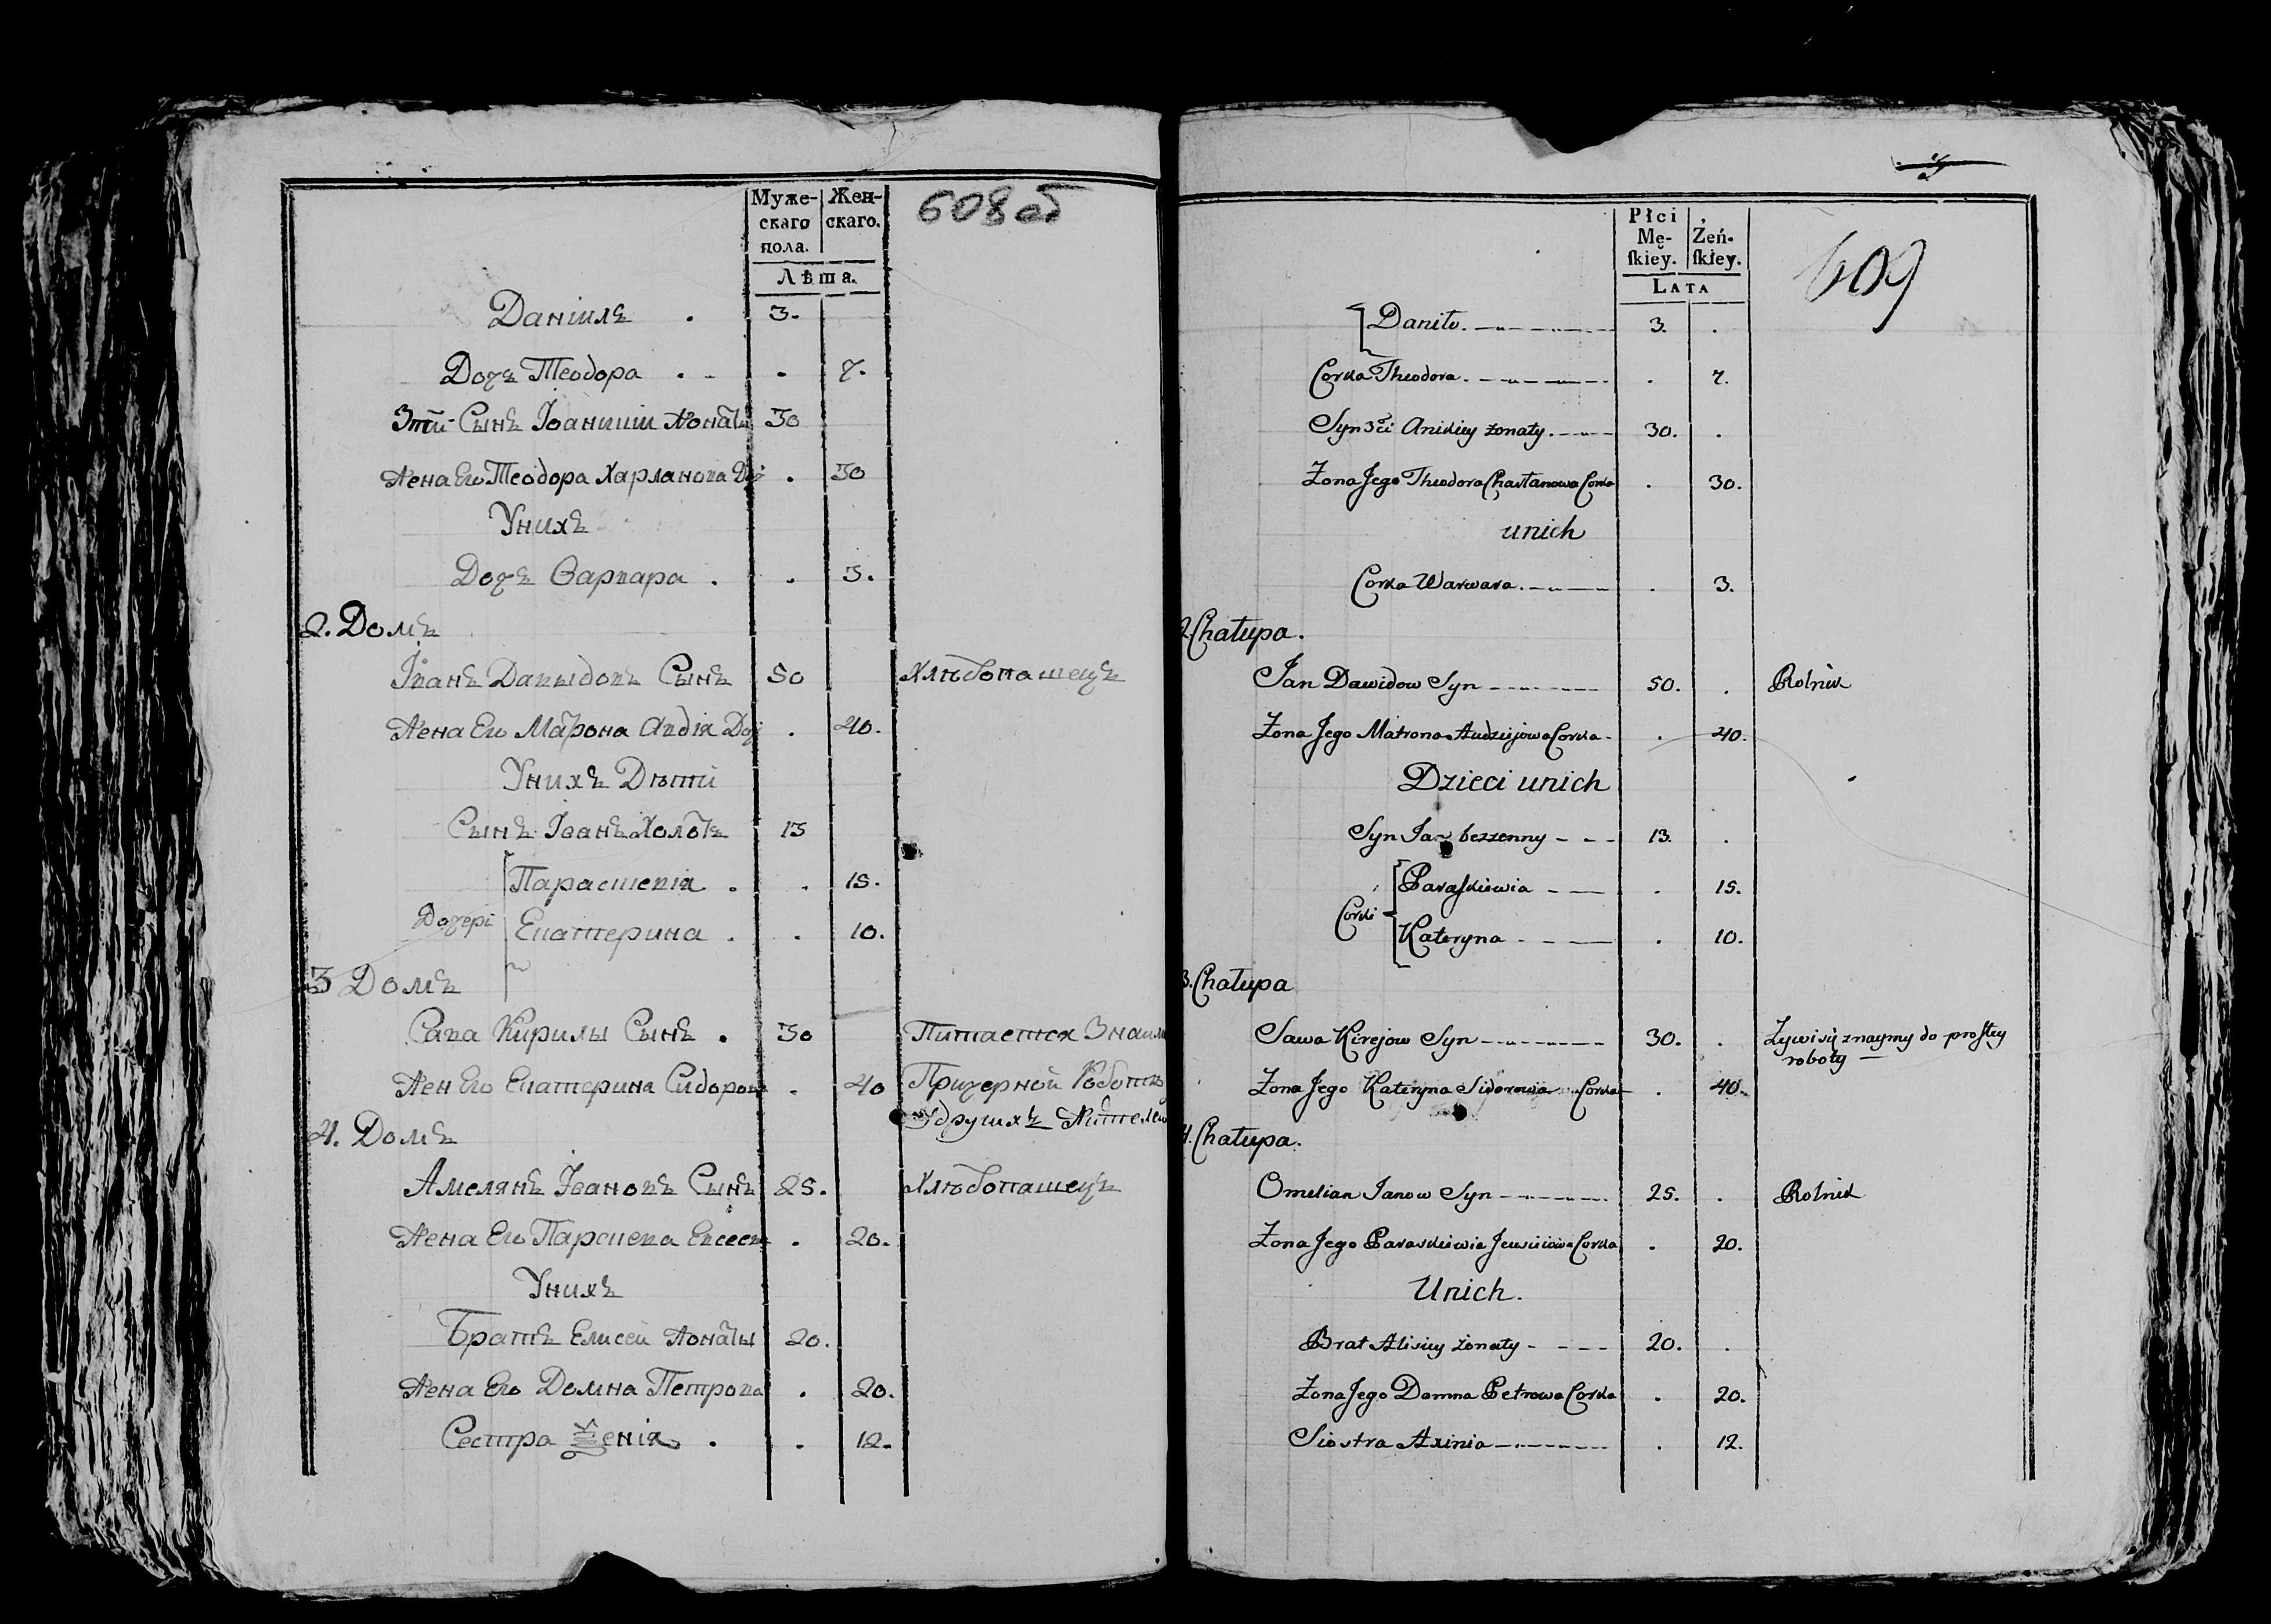 Муже-
скаго
пола.
Жен-
скаго.
Лѣта.
608 об
Данiилъ . 3.
Дочъ Теодора . . . 7.
3тiй Сынъ Іоаникiй Жонатый 30
Жена Его Теодора Харланова Доч . 30
У нихъ
Дочъ Варвара . . 3.
2. Домъ
Іванъ Давыдовъ Сынъ 50 Хлѣбопашецъ
Жена Его Матрона Авдiя Доч . 40.
У нихъ Дѣти
Сынъ Іванъ Холостъ 13
Дочерi
Параскевiя . . 15.
Екатерина . . 10.
3 Домъ
Сава Кирилы Сынъ . 30 Питается Знайм
Жен Его Екатерина Сидоров . 40 Причерной Работы
У другихъ Жителей
4. Домъ
Амелянъ Івановъ Сынъ 25. Хлѣбопашецъ
Жена Его Параскева Евсеев . 20.
У нихъ
Братъ Елисей Жонатый 20.
Жена Его Домна Петрова . 20.
Сестра Ксенiя . . 12.
Płci
Mę-
ſkiey.
Żeń-
ſkiey.
LATA
609
Daniło. 3. .
Corka Theodora. . 7.
Syn 3ci Anikiey żonaty. 30. .
Żona Jego Theodora Charłanowa Corka . 30.
u nich
Corka Warwara. . 3.
2. Chałupa.
Jan Dawidow Syn 50. . Rolnik
Żona Jego Matrona Audziejowa Corka . 40.
Dzieci u nich
Syn Jan bezżenny 13. .
Corki
Paraſkiewia . 15.
Kateryna . 10.
3. Chałupa
Sawa Kirejow Syn 30. . Żywi się z naymy do proſtey
roboty
Żona Jego Kateryna Sidorowa Corka . 40.
4. Chałupa.
Omelian Janow Syn 25. . Rolnik
Żona Jego Paraskiewia Jewsiejowa Corka . 20.
U nich.
Brat Alisiey żonaty 20. .
Żona Jego Domna Petrowa Corka . 20.
Siostra Axinia . 12.